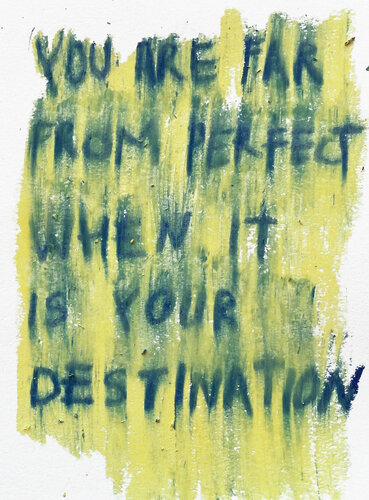 YOU ARE FAR
FROM PERFECT
WHEN IT
IS YOUR
DESTINATION